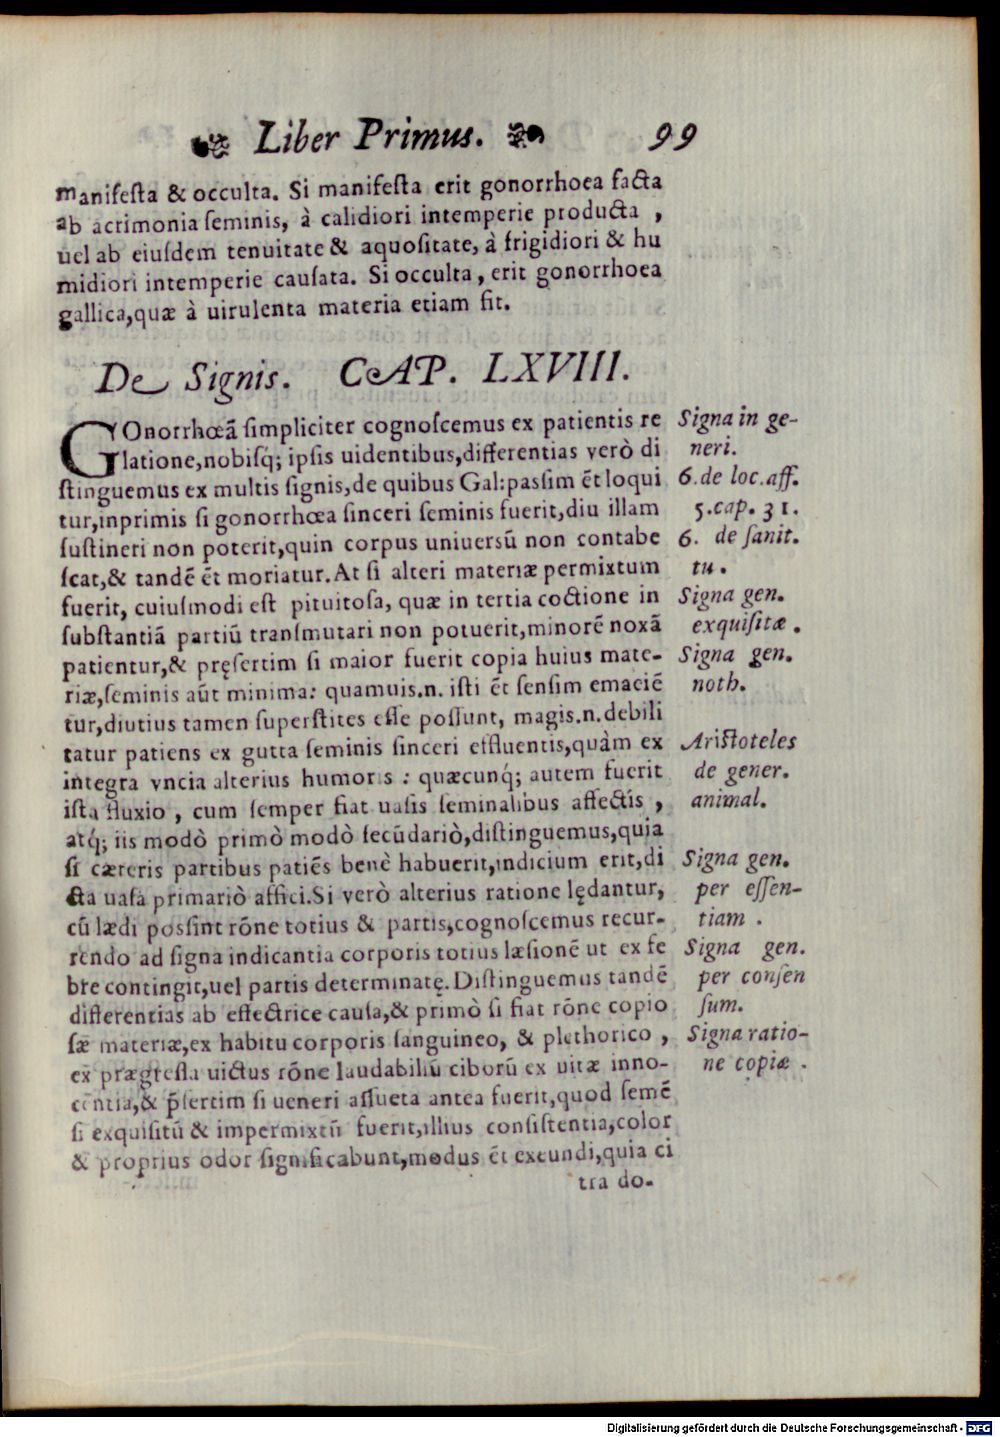 Liber Primus. 99
manifeſta & occulta. Si manifeſta erit gonorrhoea facta
ab acrimonia ſeminis, à calidiori intemperie producta ,
uel ab eiuſdem tenuitate & aquoſitate, à frigidiori & hu
midiori intemperie cauſata. Si occulta, erit gonorrhoea
gallica,quæ à uirulenta materia etiam fit.
De Signis. CAP. LXVIII.
GOnorrhœã ſimpliciter cognoſcemus ex patientis re
latione,nobiſq́; ipſis uidentibus,differentias verò di
ſtinguemus ex multis ſignis,de quibus Gal:paſsim ēt loqui
tur,inprimis ſi gonorrhœa ſinceri ſeminis fuerit,diu illam
ſuſtineri non poterit,quin corpus uniuersū non contabe
ſcat,& tandē ēt moriatur.At ſi alteri materiæ permixtum
fuerit, cuiuſmodi eſt pituitoſa, quæ in tertia coctione in
ſubſtantiã partiū tranſmutari non potuerit,minorē noxã
patientur,& pręſertim ſi maior fuerit copia huius mate-
riæ,ſeminis aūt minima: quamuis.n. iſti ēt ſenſim emaciē
tur,diutius tamen ſuperſtites eſſe poſſunt, magis.n.debili
tatur patiens ex gutta ſeminis ſinceri effluentis,quàm ex
integra vncia alterius humoris : quæcunq́; autem fuerit
iſta fluxio , cum ſemper fiat uaſis ſeminalibus affectis ,
atq́; iis modò primò modò ſecūdariò,diſtinguemus,quia
ſi cæteris partibus patiēs benè habuerit,indicium erit,di
cta uaſa primariò affici.Si verò alterius ratione lędantur,
cū lædi poſſint rōne totius & partis,cognoſcemus recur-
rendo ad ſigna indicantia corporis totius læſionē ut ex fe
bre contingit,uel partis determinatę.Diſtinguemus tandē
differentias ab effectrice cauſa,& primò ſi fiat rōne copio
ſæ materiæ,ex habitu corporis ſanguineo, & plethorico ,
ex prægreſſa uictus rōne laudabiliū ciborū ex uitæ inno-
centia,& p̄ſertim ſi ueneri aſſueta antea fuerit,quod ſemē
ſi exquiſitū & impermixtū fuerit,illius conſiſtentia,color
& proprius odor ſignificabunt,modus ēt exeundi,quia ci
tra do-
Signa in ge-
neri.
6.de loc.aff.
5.cap. 31.
6. de ſanit.
tu.
Signa gen.
exquiſitæ .
Signa gen.
noth.
Ariſtoteles
de gener.
animal.
Signa gen.
per eſſen-
tiam .
Signa gen.
per conſen
ſum.
Signa ratio-
ne copiæ .
Digitalisierung gefördert durch die Deutsche Forschungsgemeinschaft - DFG